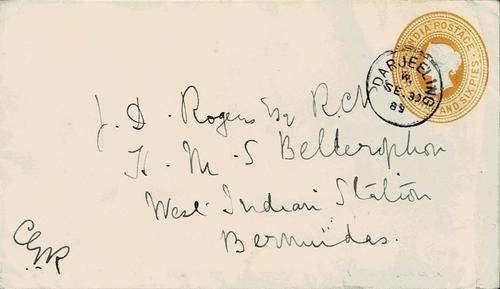 INDIA POSTAGE
AND SIX PIES
DARJEELING
SE. 30
89
J. D. Rogers Esq R.N
H. M. S Bellerophon
West Indian Station
Bermudas.